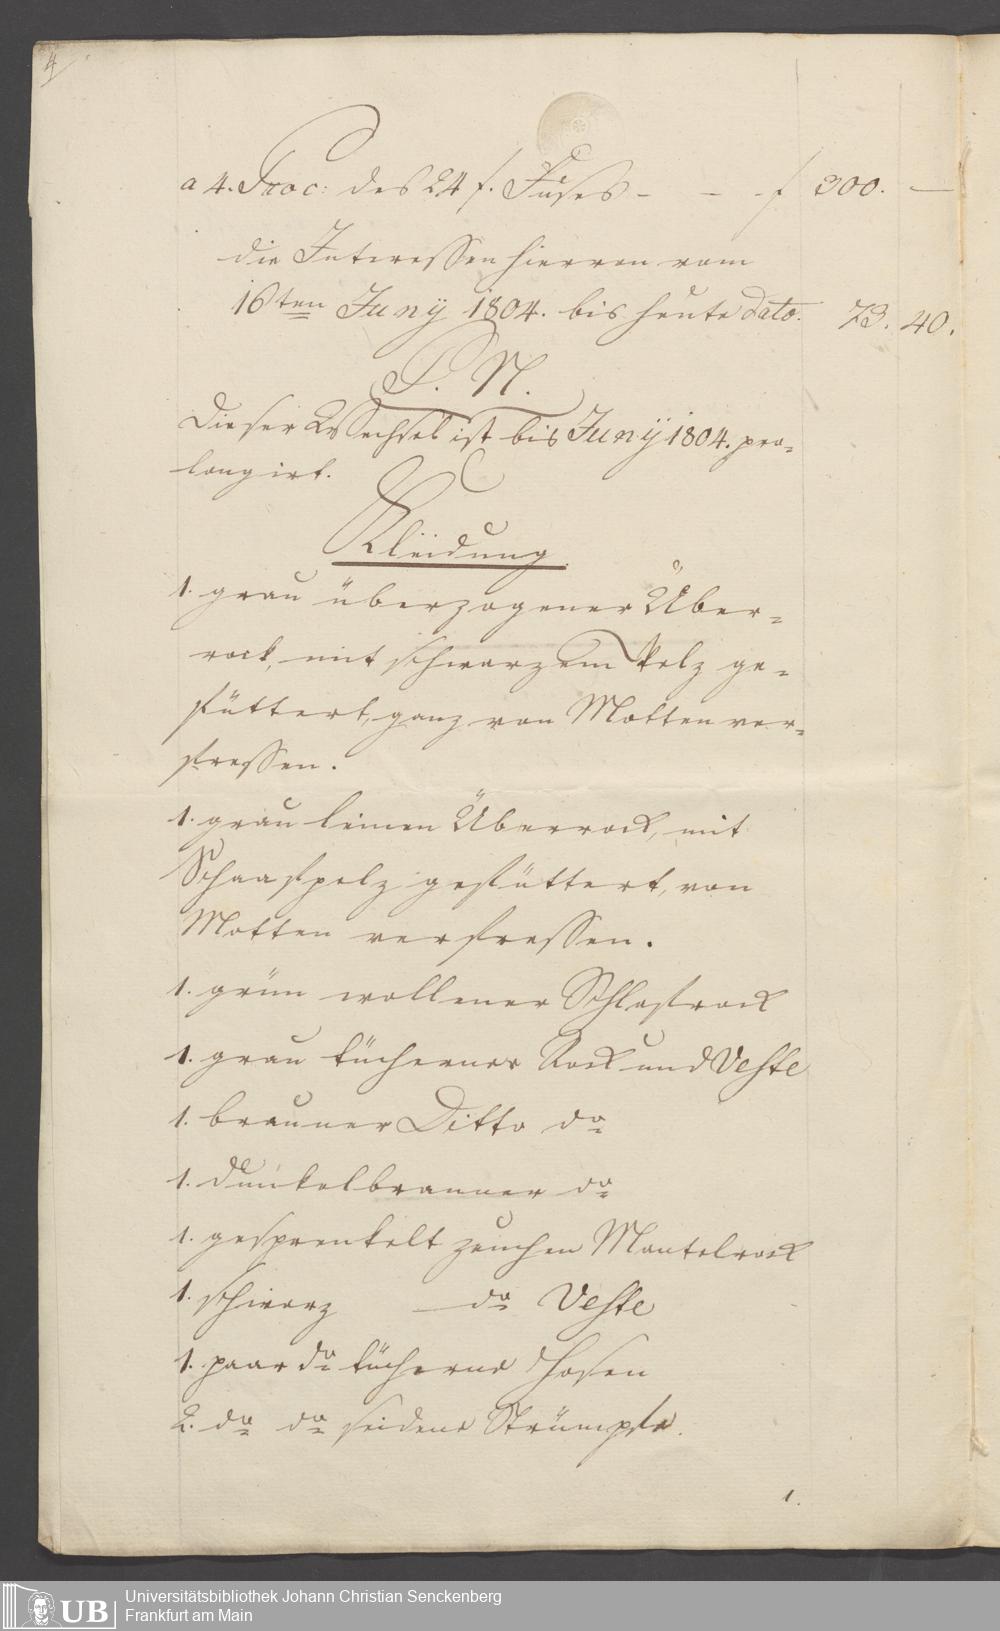 4
a 4. Proc: des 24 f. Fuses - - - f 300. —
die Interessen hiervon vom
16ten Juny 1804. bis heute dato. 73. 40.
P. N.
Dieser Wechsel ist bis Juny 1804. pro-
longirt.
Kleidung
1. grau überzogener Über-
rock, mit schwarzem Pelz ge-
füttert, ganz von Motten ver-
fressen.
1. grau leinen Überrock, mit
Schaafpelz gefüttert, von
Motten verfressen.
1. grün wollener Schlafrock
1. grau tücherner Rock und Veste
1. brauner Ditto do
1. dunkelbrauner do
1. gesprenkelt zeuchen Mantelrock
1. schwarz — do Veste
1. paar do tücherne Hosen
2. do do seidene Strümpfe.
1.
Universitätsbibliothek Johann Christian Senckenberg
Frankfurt am Main
UB